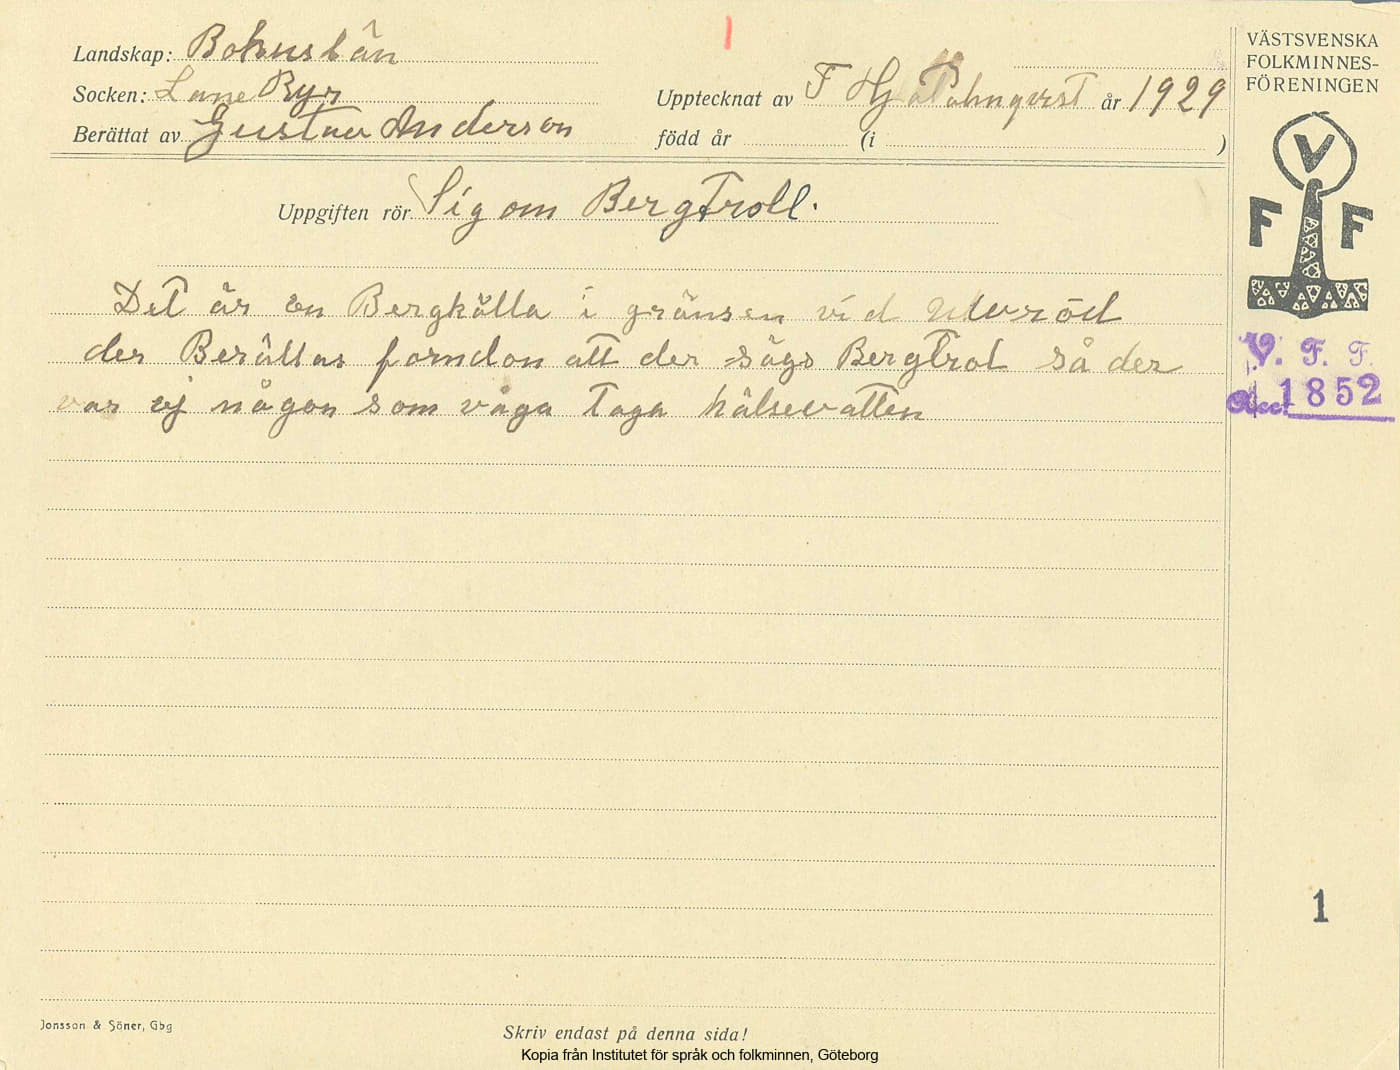 Landskap: Bohuslän
Socken: Lane Ryr
Berättat av Gustav Anderson
Upptecknat av F Hj Palmqvist år 1929
född år (i )
Uppgiften rör Sig om BergTroll.
Det är en Bergkälla i gränsen vid
der Berättas forndon att der sågs BergTrol så der
var ej någon som våga Taga hälsevatten
VÄSTSVENSKA
FOLKMINNES-
FÖRENINGEN
V
F F
V. F. F.
Acc. 1852
1
Jonsson & Söner, Gbg
Skriv endast på denna sida!
Kopia från Institutet för språk och folkminnen, Göteborg